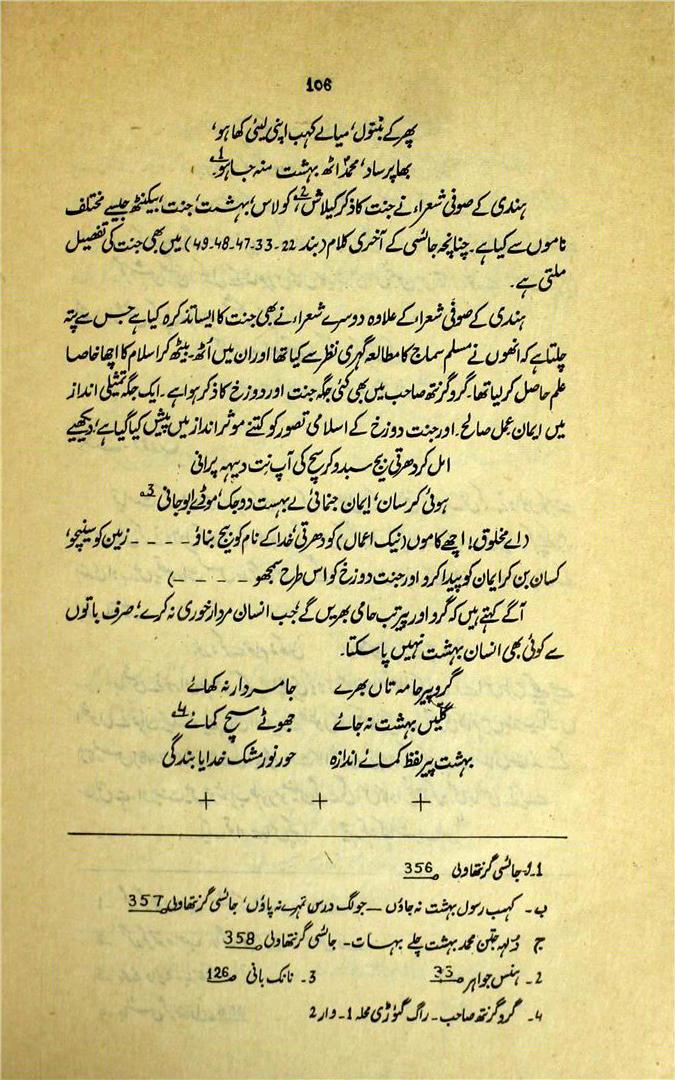 106
پھر کے بنتول، میاے کہب اپنی لیئی کھا ہو،
بھا پرساد، محمدؐ اٹھ بہشت منہ جاہو۔1
ہندی کے صوفی شعراء نے جنت کا ذکر کیلاش2، کولاس، بہشت، جنت، بیکنٹھ جیسے مختلف
ناموں سے کیا ہے۔ چنانچہ جائسی کے آخری کلام (بند 22-33-47-48-49) میں بھی جنت کی تفصیل
ملتی ہے۔
ہندی کے صوفی شعراء کے علاوہ دوسرے شعراء نے بھی جنت کا ایسا تذکرہ کیا ہے جس سے پتہ
چلتا ہے کہ انھوں نے مسلم سماج کا مطالعہ گہری نظر سے کیا تھا اور ان میں اُٹھ بیٹھ کر اسلام کا اچھا خاصا
علم حاصل کر لیا تھا۔ گرو گرنتھ صاحب میں بھی کئی جگہ جنت اور دوزخ کا ذکر ہوا ہے۔ ایک جگہ تمثیلی انداز
میں ایمان، عمل صالح۔ اور جنت دوزخ کے اسلامی تصور کو کتنے موثر انداز میں پیش کیا گیا ہے؛ دیکھیے
امل کر دھرتی بیج سبدو کر سچ کی آپ نِت دیہہ پرانی
ہوئی کرسان، ایمان جنمائی لے بہست دوجک، موڈے ابو جانی 3
(اے مخلوق! اچھے کاموں (نیک اعمال) کو دھرتی، خدا کے نام کو بیج بناؤ - - - - زمین کو سینچو،
کسان بن کر ایمان کو پیدا کرو اور جنت دوزخ کو اس طرح سمجھو - - - -)
آگے کہتے ہیں کہ گرو اور پیر تب حامی بھریں گے، جب انسان مردار خوری نہ کرے؛ صرف باتوں
سے کوئی بھی انسان بہشت نہیں پا سکتا۔
گرو پیر حامہ تاں بھرے جا مردار نہ کھائے
گلیں بہشت نہ جائے جھوٹے سچ کمائے 4
بہشت پیر لفظ کمائے اندازہ حور نور مشک خدایا بندگی
+ + +
1۔ ا۔ جائسی گرنتھاولی ص 356
ب۔ کہب رسول بہشت نہ جاؤں — جو لگ درس تمہرے نہ پاؤں، جائسی گرنتھاولی ص 357
ج دُلہہ جتن محمد بہشت چلے بہسات۔ جائسی گرنتھاولی ص 358
2۔ ہنس جواہر ص 33 3۔ نانک بانی ص 126
4۔ گرو گرنتھ صاحب۔ راگ گوڑی محلہ 1۔ وار 2